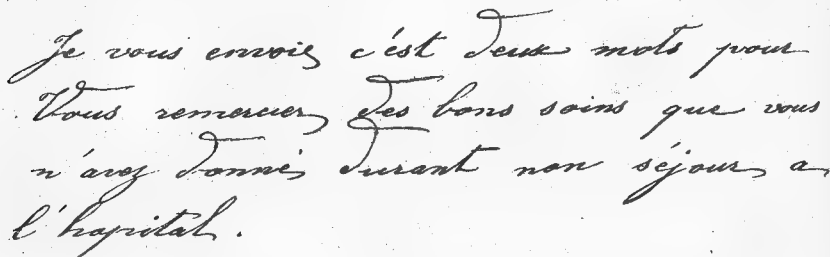 Je vous envois c'ést deux mots pour
Vous remercier des bons soins que vous
n'avez donnés durant non séjour a
l'hopital.